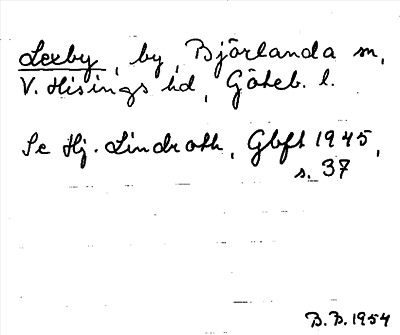 Lexby, by, Björlanda sn,
V. Hisings hd, Göteb. l.
Se Hj. Lindroth, Gbft 1945,
s. 37
B.B. 1954